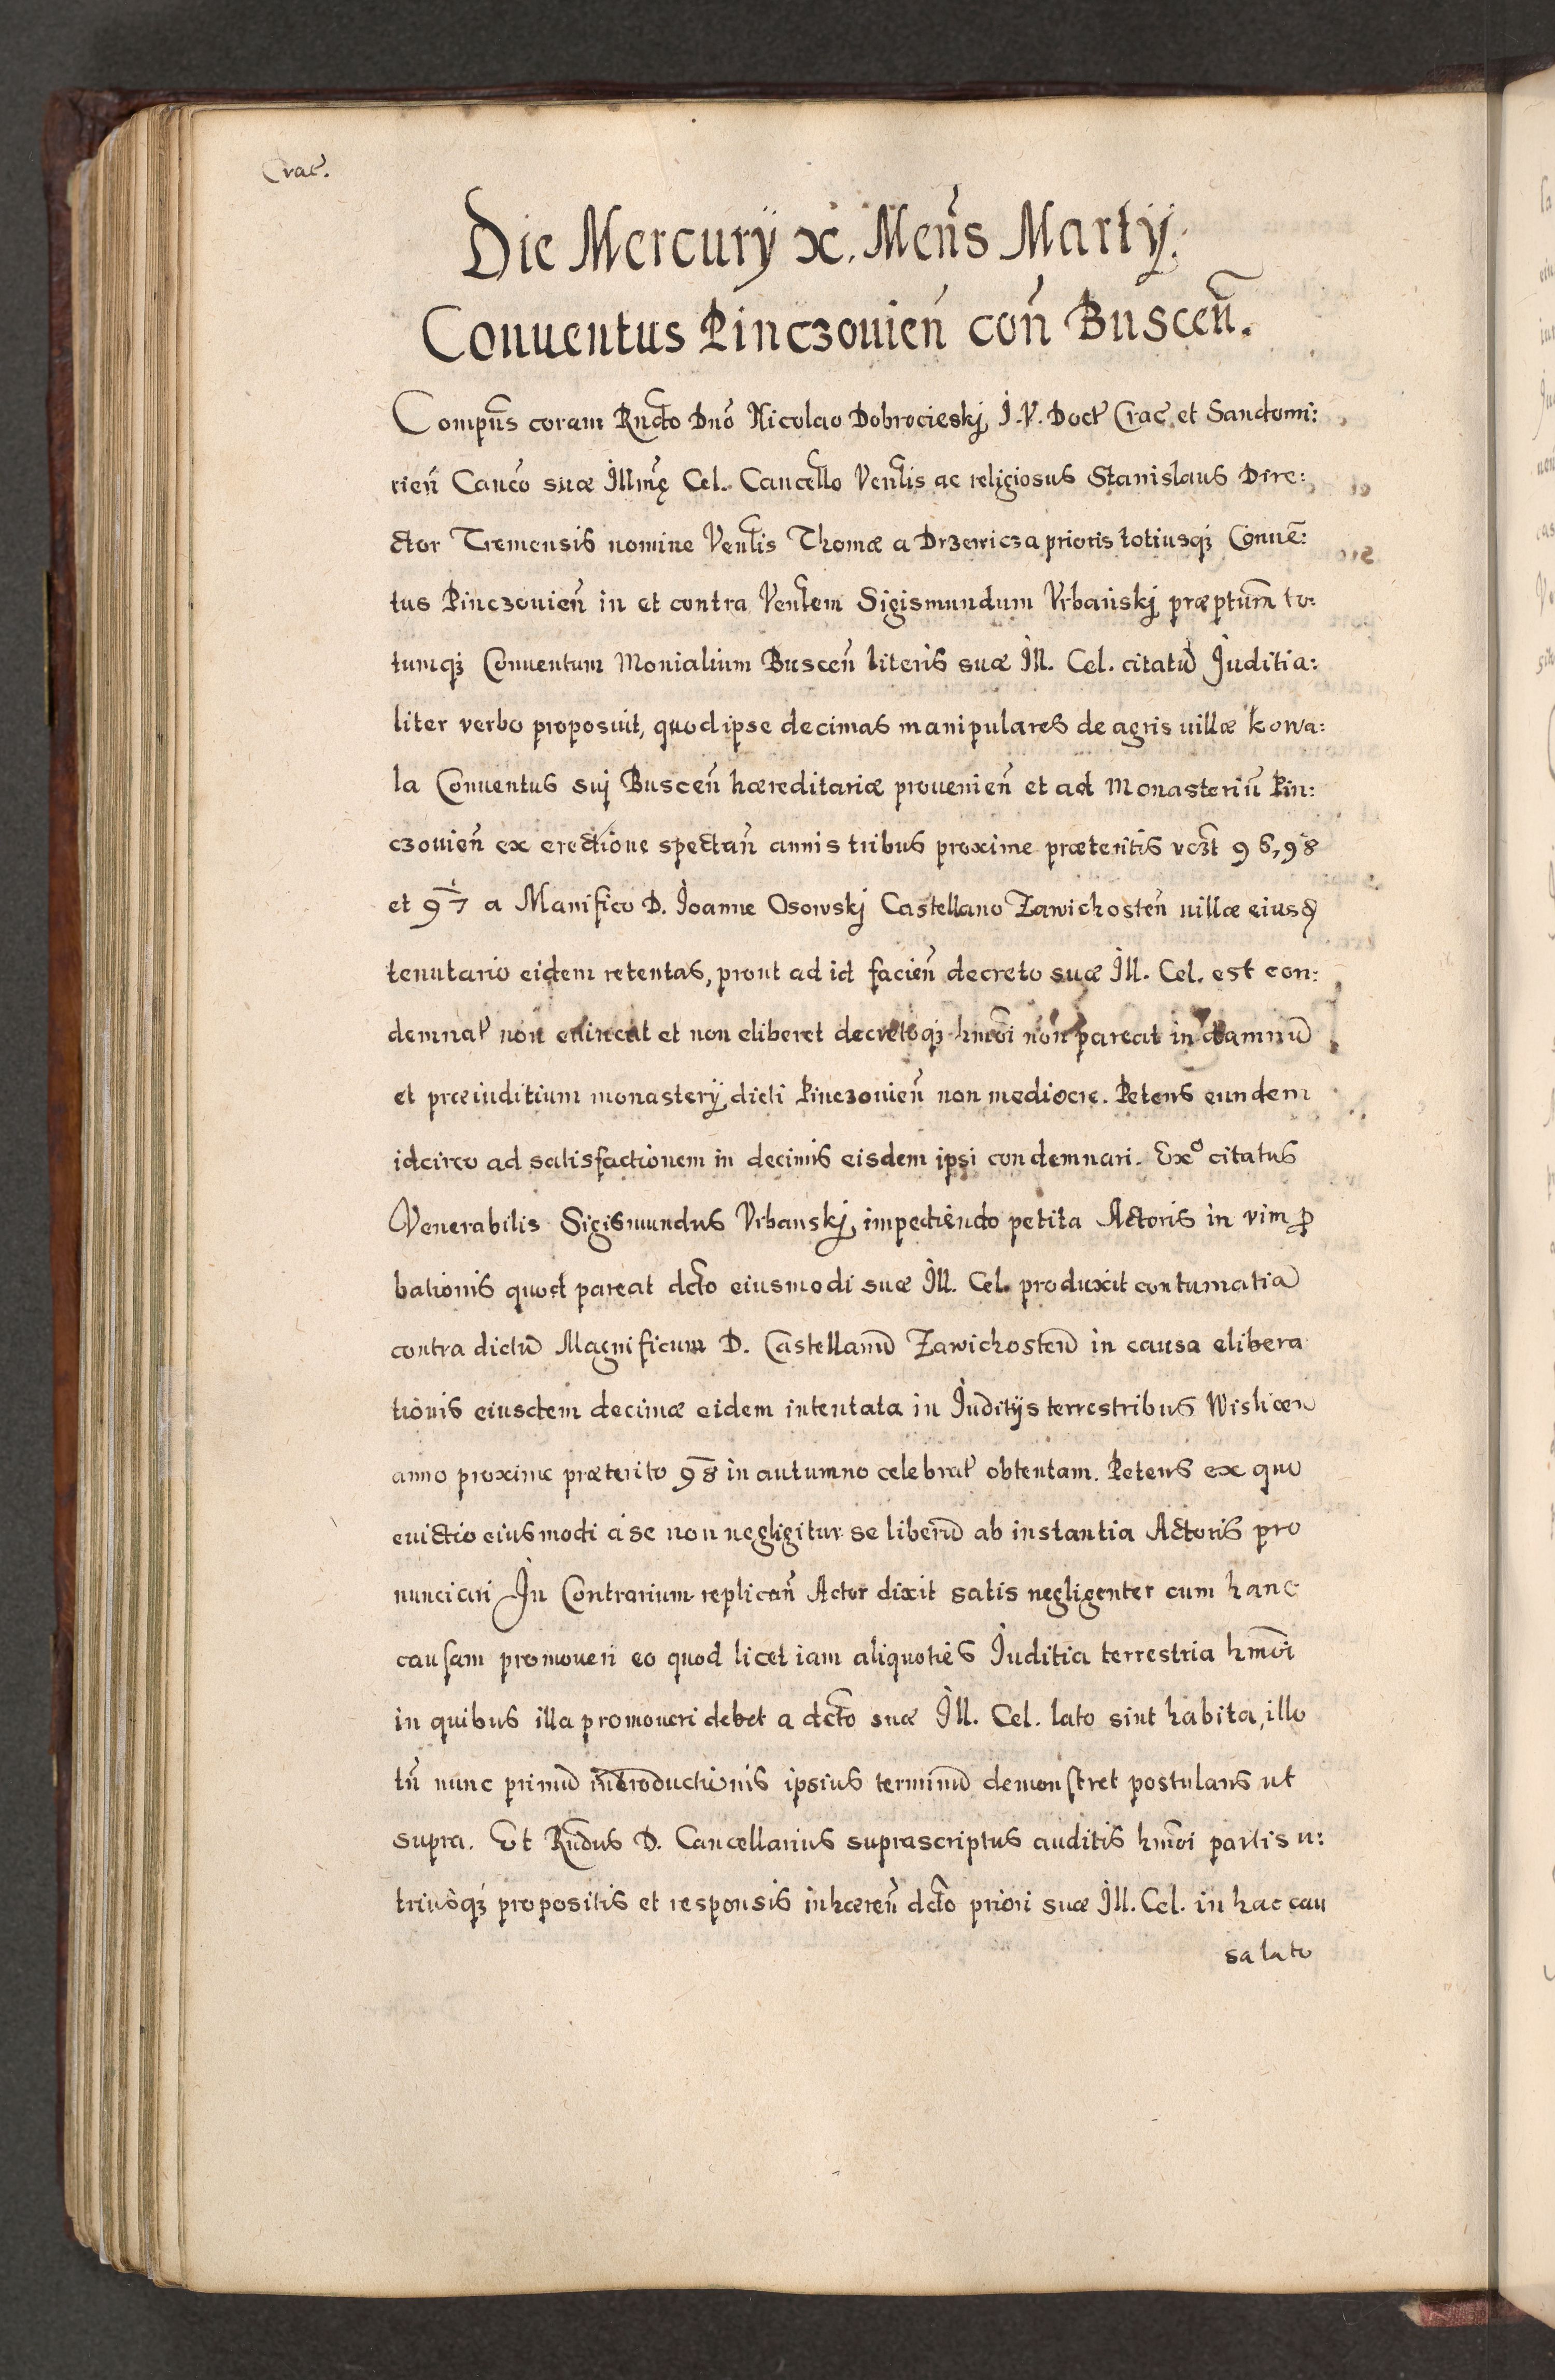 Crac̃.
Die Mercurÿ x. Meñs Martÿ.
Conuentus Pinczouień coñ Busceñ.
Compñs coram Rndo Dnõ Nicolao Dobrocieskj I.V. Doct̃ Crac̃ et Sandomi:
rieñ Canc̃o suæ Illmę Cel. Cancello Venlis ac religiosus Stanislaus Dire:
ctor Tremensis nomine Venlis Thomæ a Drzewicza prioris totiusq; Conuẽ:
tus Pinczouieñ in et contra Venlem Sigismundum Vrbańskj præptum̃ to:
tumq; Conuentum Monialium Busceñ literis suæ Ill. Cel. citatũ Juditia:
liter verbo proposuit, quod ipse decimas manipulares de agris uillæ Kowa:
la Conuentus suj Busceñ hæreditariæ prouenieñ et ad Monasteriũ Pin:
czouieñ ex erectione spectañ annis tribus proxime præteritis vczt 96, 98
et 97 a Manifico D. Joanne Osowskj Castellano Zawichosteñ uillæ eiusđ
tenutario eidem retentas, prout ad id facieñ decreto suæ Ill. Cel. est con:
demnat̃ non euincat et non eliberet decretoq; hmõi non pareat in damnũ
et præiuditium monasterÿ dicti Pinczouieñ non mediocre. Petens eundem
idcirco ad satisfactionem in decimis eisdem ipsi condemnari. Exº citatus
Venerabilis Sigismundus Vrbanskj impediendo petita Actoris in vim ꝓ
bationis quod pareat dcto eiusmodi suæ Ill. Cel. produxit contumatiã
contra dictũ Magnificum D. Castellanũ Zawichosteñ in causa elibera
tionis eiusdem decimæ eidem intentata in Juditijs terrestribus Wisliceñ
anno proxime præterito 98 in autumno celebrat̃ obtentam. Petens ex quo
euictio eiusmodi a se non negligitur se liberũ ab instantia Actoris pro
nunciari In Contrarium replicañ Actor dixit satis negligenter eum hanc
causam promoueri eo quod licet iam aliquoties Juditia terrestria hmõi
in quibus illa promoueri debet a dcto suæ Ill. Cel. lato sint habita, illo
tñ nunc primũ introductionis ipsius terminũ demonstret postulans ut
supra. Et Rndus D. Cancellarius suprascriptus auditis hmõi partis u:
triusq; propositis et responsis inhæreñ dcto priori suæ Ill. Cel. in hac cau
sa lato